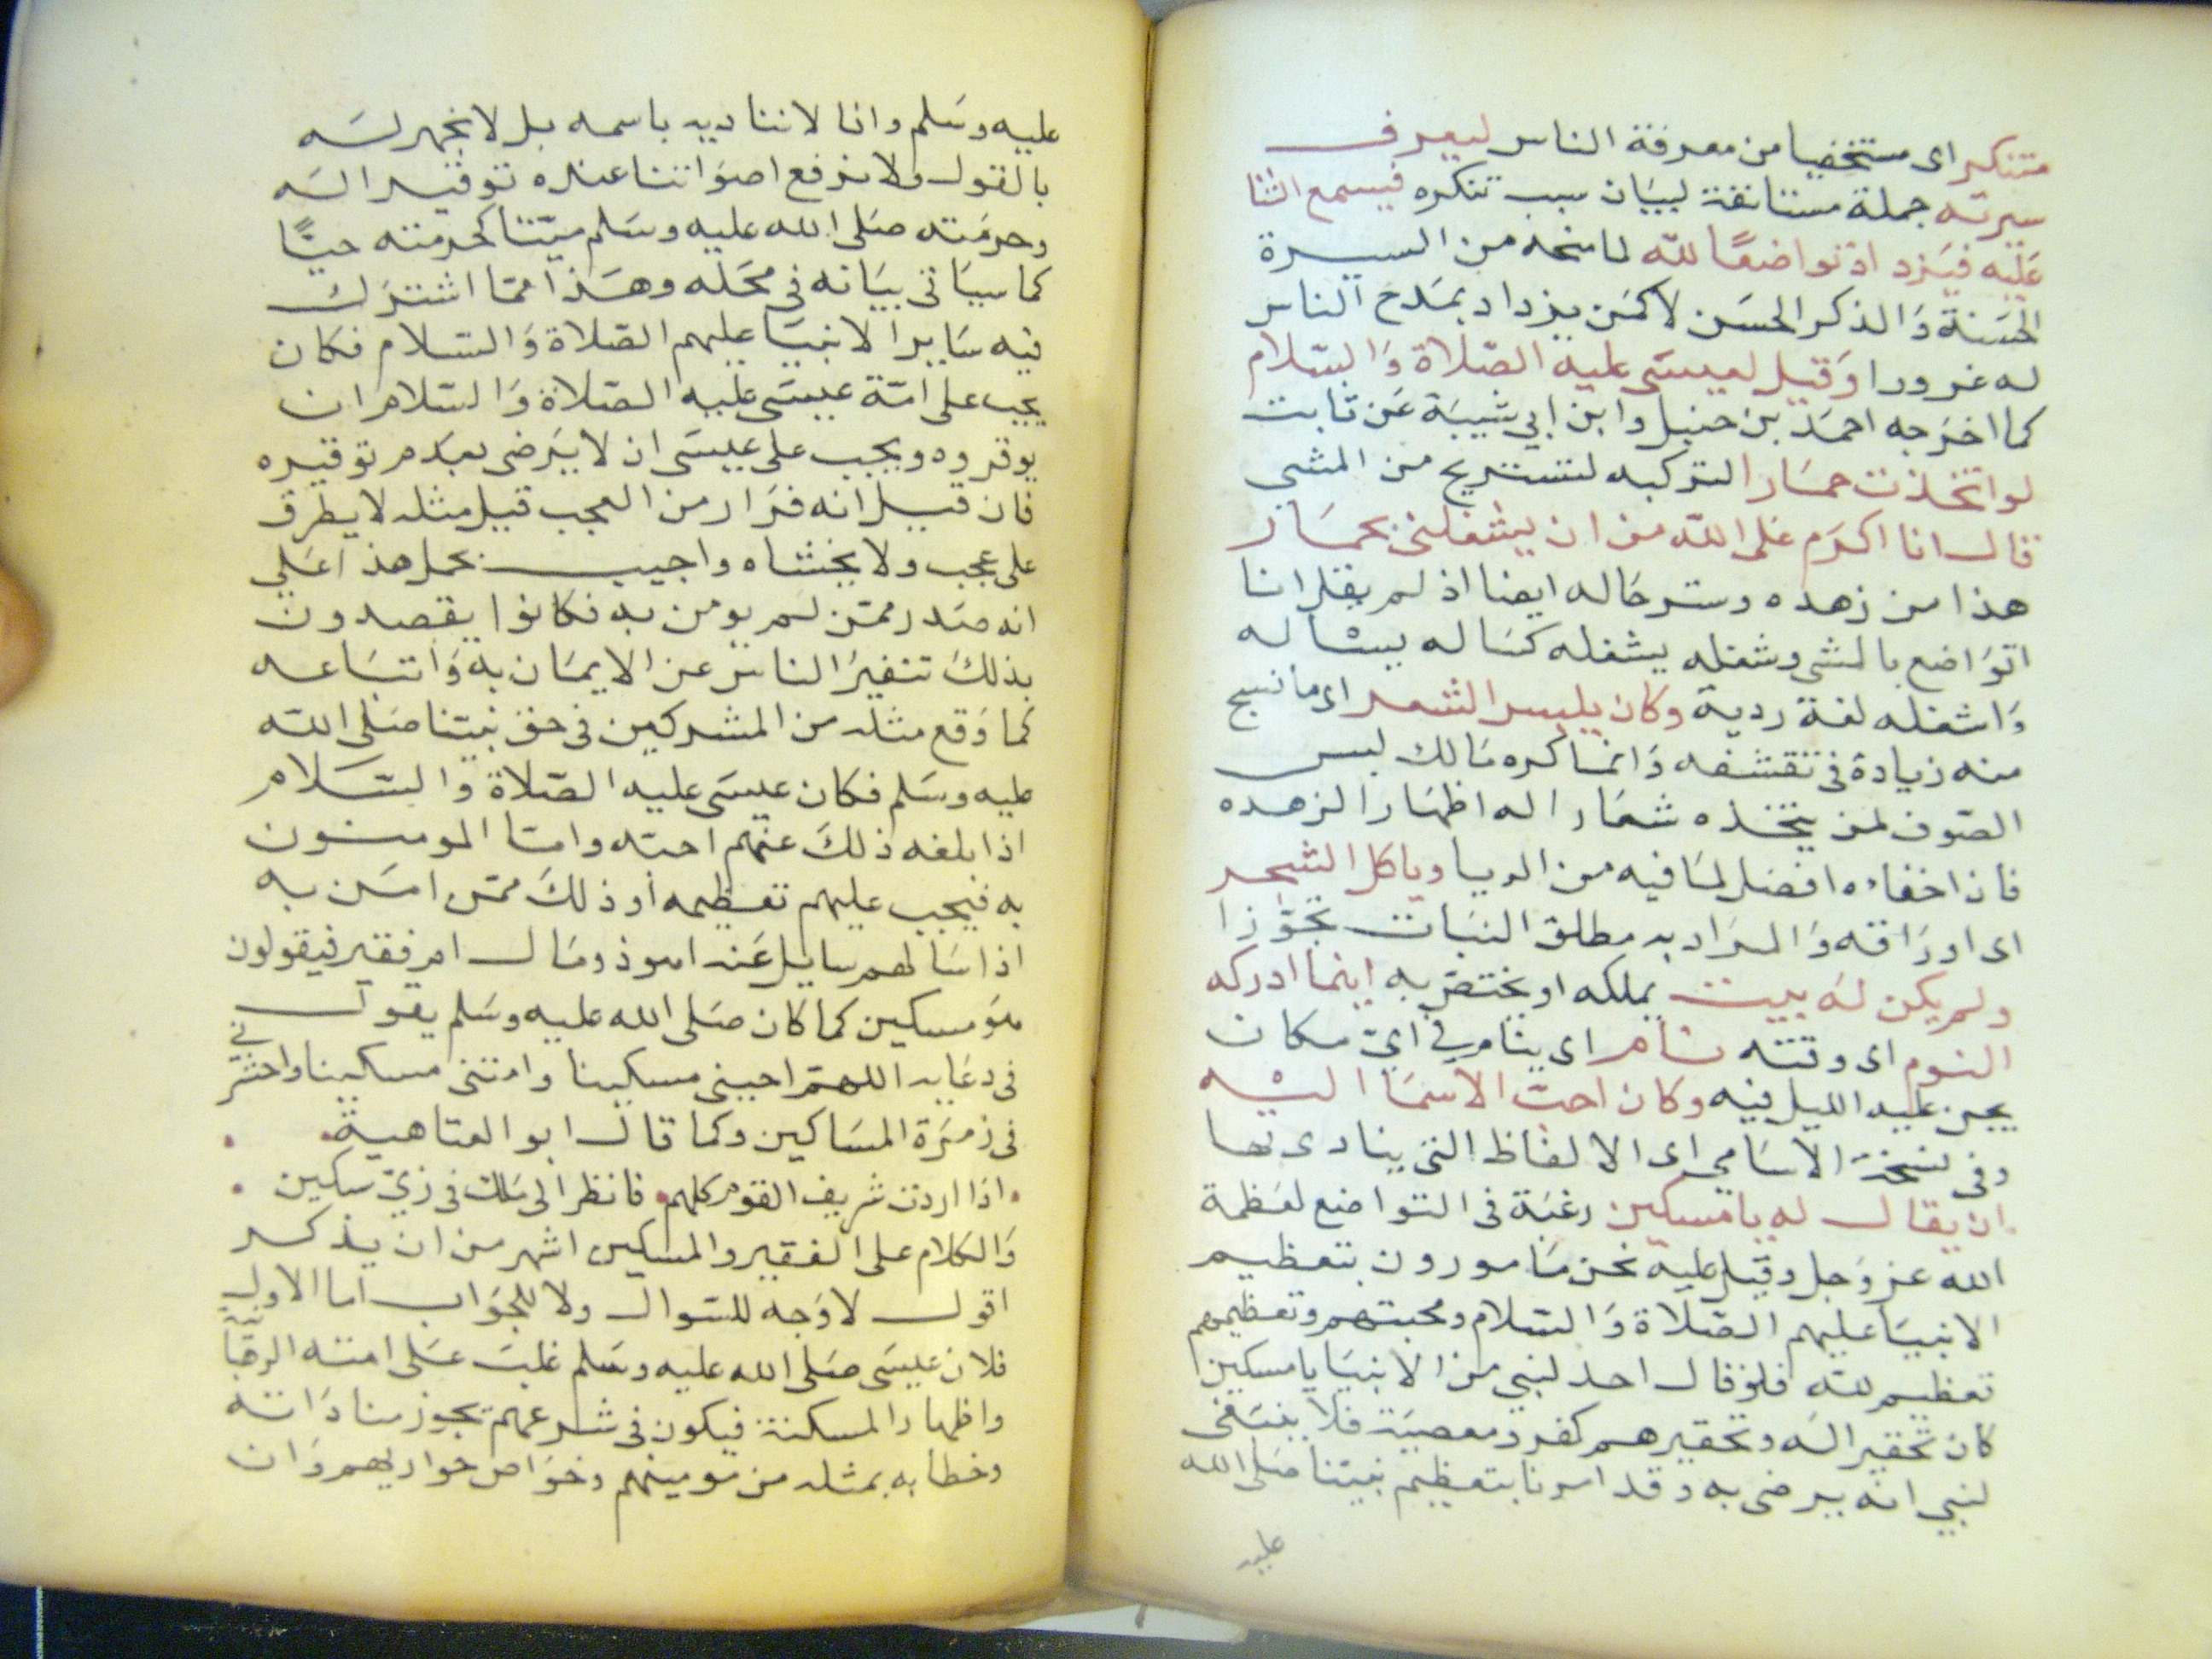 متنكرا اى مستخفيا من معرفة الناس ليعرف
سيرته جملة مستانفة لبيان سبب تنكره فيسمع الثنا
عليه فيزداد تواضعًا لله لما منحه من السيرة
الحسنة والذكر الحسن لا كمن يزداد بمدح الناس
له غرورا وقيل لعيسى عليه الصلاة والسلام
كما اخرجه احمد بن حنبل وابن ابي شيبة عن ثابت
لو اتخذت حمارا لتركبه لتستريح من المشي
قال انا اكرم على الله من ان يشغلنى بحمار
هذا من زهده وستر حاله ايضا اذ لم يقل انا
اتواضع بالمشى وشغله يشغله كساله يساله
واشغله لغة ردية وكان يلبس الشعر اى ما نسج
منه زيادة فى تقشفه وانما كره مالك لبس
الصوف لمن يتخذه شعارا له اظهارا لزهده
فان اخفاءه افضل لما فيه من الريا وياكل الشجر
اى اوراقه والمراد به مطلق النبات تجوزا
ولم يكن له بيت يملكه او يختص به اينما ادركه
النوم اى وقته نام اى ينام في اي مكان
يجن عليه الليل فيه وكان احب الاسما اليه
وفى نسخة الاسامي اى الالفاظ التى ينادى بها
ان يقال له يا مسكين رغبة فى التواضع لعظمة
الله عز وجل وقيل عليه نحن مامورون بتعظيم
الانبيا عليهم الصلاة والسلام ومحبتهم وتعظيمهم
تعظيم لله فلو قال احد لنبي من الانبيا يا مسكين
كان تحقيرا له وتحقيرهم كفر ومعصية فلا ينبغى
لنبي انه يرضى به وقد امرنا بتعظيم نبينا صلى الله
عليه
عليه وسلم وانا لا نناديه باسمه بل لا نجهر له
بالقول ولا نرفع اصواتنا عنده توقيرا له
وحرمته صلى الله عليه وسلم ميتا كحرمته حيًّا
كما سياتى بيانه فى محله وهذا مما اشترك
فيه ساير الانبيا عليهم الصلاة والسلام فكان
يجب على امة عيسى عليه الصلاة والسلام ان
يوقروه ويجب على عيسى ان لا يرضى بعدم توقيره
فان قيل انه فرار من العجب قيل مثله لا يطرق
على عجب ولا يخشاه واجيب بحمل هذا على
انه صدر ممن لم يومن به فكانوا يقصدون
بذلك تنفير الناس عن الايمان به واتباعه
كما وقع مثله من المشركين فى حق نبينا صلى الله
عليه وسلم فكان عيسى عليه الصلاة والسلام
اذا بلغه ذلك عنهم احبه واما المومنون
به فيجب عليهم تعظيمه او ذلك ممن امن به
اذا سالهم سايل عنه اهو ذو مال ام فقير فيقولون
هو مسكين كما كان صلى الله عليه وسلم يقول
فى دعايه اللهم احيينى مسكينا وامتنى مسكينا واحشرنى
فى زمرة المساكين وكما قال ابو العتاهية
اذا اردت شريف القوم كلهم فانظر الى ملك فى زي مسكين
والكلام على الفقير والمسكين اشهر من ان يذكر
اقول لا وجه للسوال ولا للجواب اما الاول
فلان عيسى صلى الله عليه وسلم غلبت على امته
واظهار المسكنة فيكون فى شرعهم تجوز مناداته
وخطابه بمثله من مومنيهم وخواص حواريهم وان